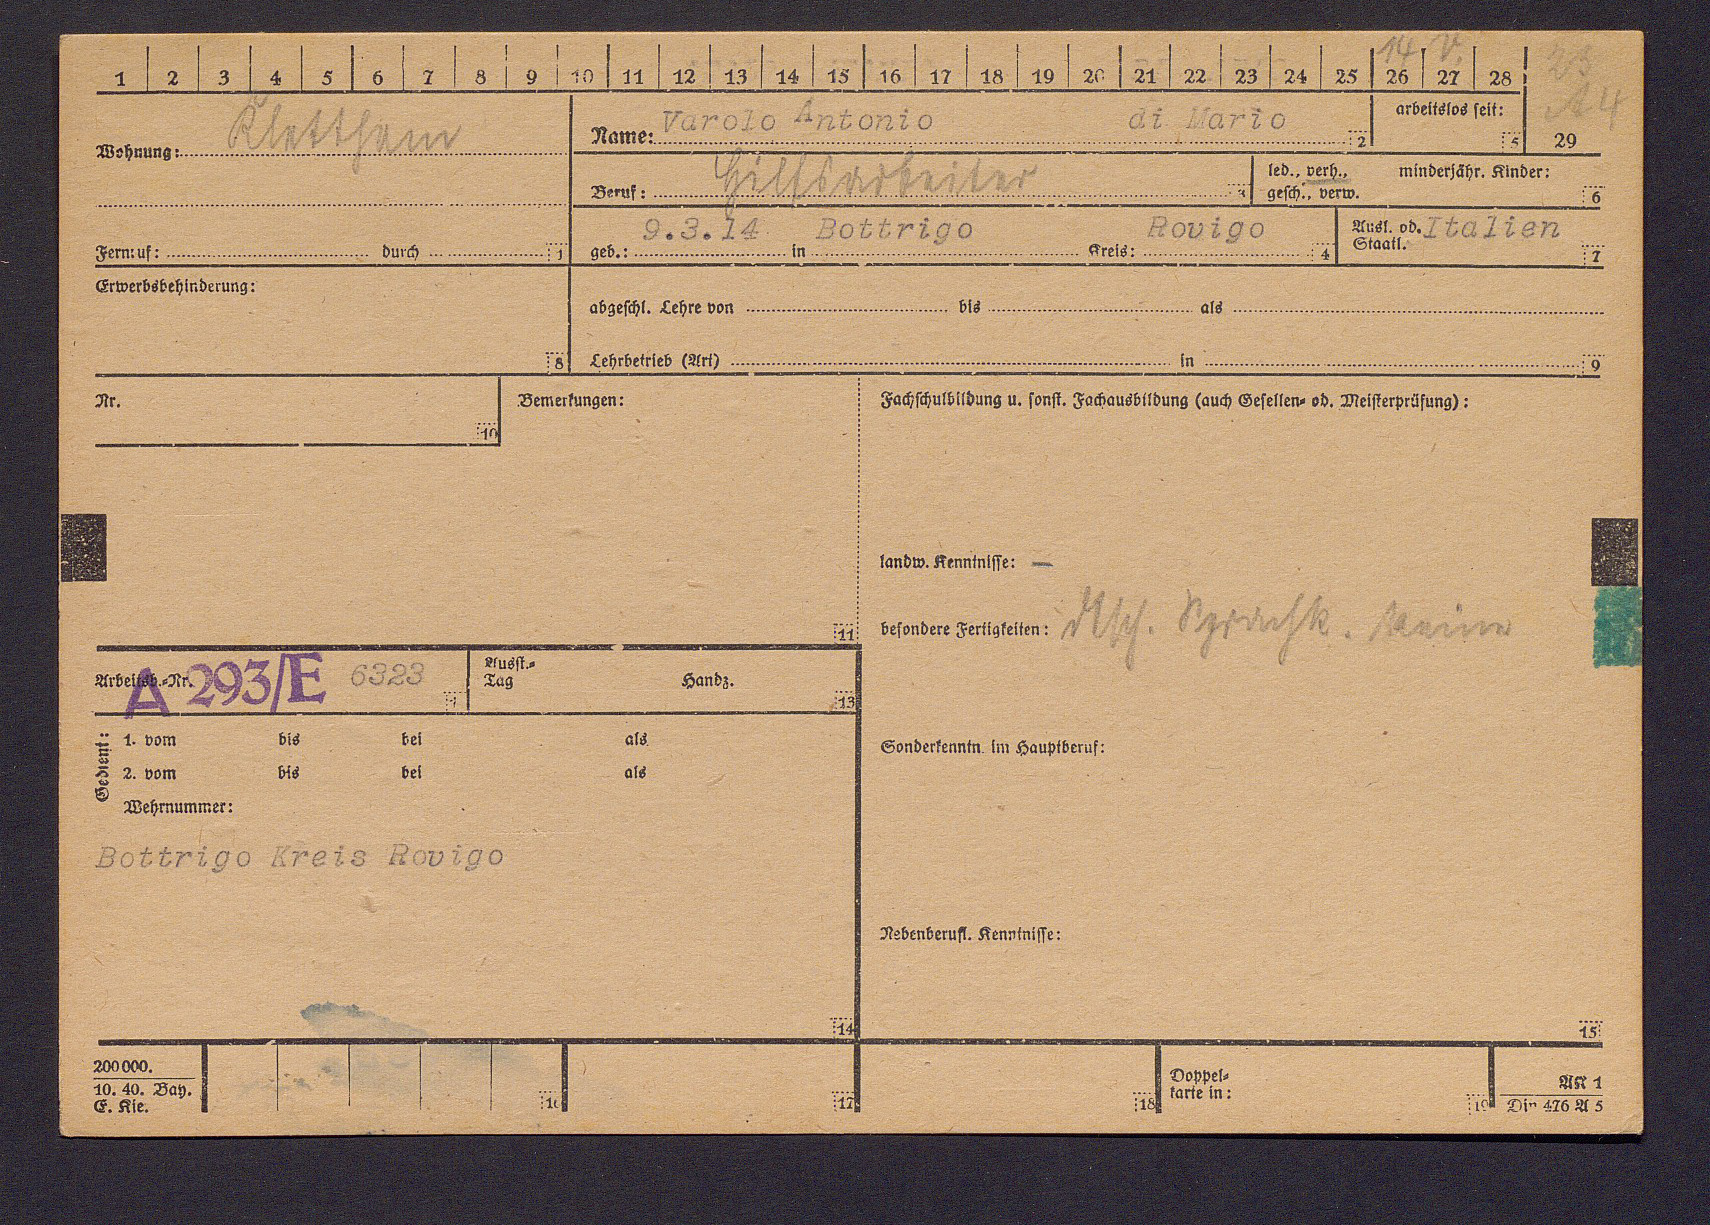 14 V. 23
1 2 3 4 5 6 7 8 9 10 11 12 13 14 15 16 17 18 19 20 21 22 23 24 25 26 27 28
A 4
29
Wohnung: Klettham
Name: Varolo Antonio di Mario 2
arbeitslos seit: 5
Beruf: Hilfsarbeiter 3
led., verh., gesch., verw. minderjähr. Kinder: 6
Fernruf: durch 1
geb.: 9.3.14 in Bottrigo Kreis: Rovigo 4
Ausl. od. Staatl. Italien 7
Erwerbsbehinderung: 8
abgeschl. Lehre von bis als
Lehrbetrieb (Art) in 9
Nr. 10
Bemerkungen: 11
Fachschulbildung u. sonst. Fachausbildung (auch Gesellen- od. Meisterprüfung):
landw. Kenntnisse: —
besondere Fertigkeiten: dtsch. Sprachk. keine
Arbeitsb.-Nr. A 293/E 6323
Ausst.-Tag Handz. 13
Gedient: 1. vom bis bei als
2. vom bis bei als
Wehrnummer:
Sonderkenntn. im Hauptberuf:
Bottrigo Kreis Rovigo
Nebenberufl. Kenntnisse:
14 15
200 000.
10. 40. Bay.
E. Kie.
16 17 18
Doppel-
karte in: 19
AK 1
Din 476 A 5